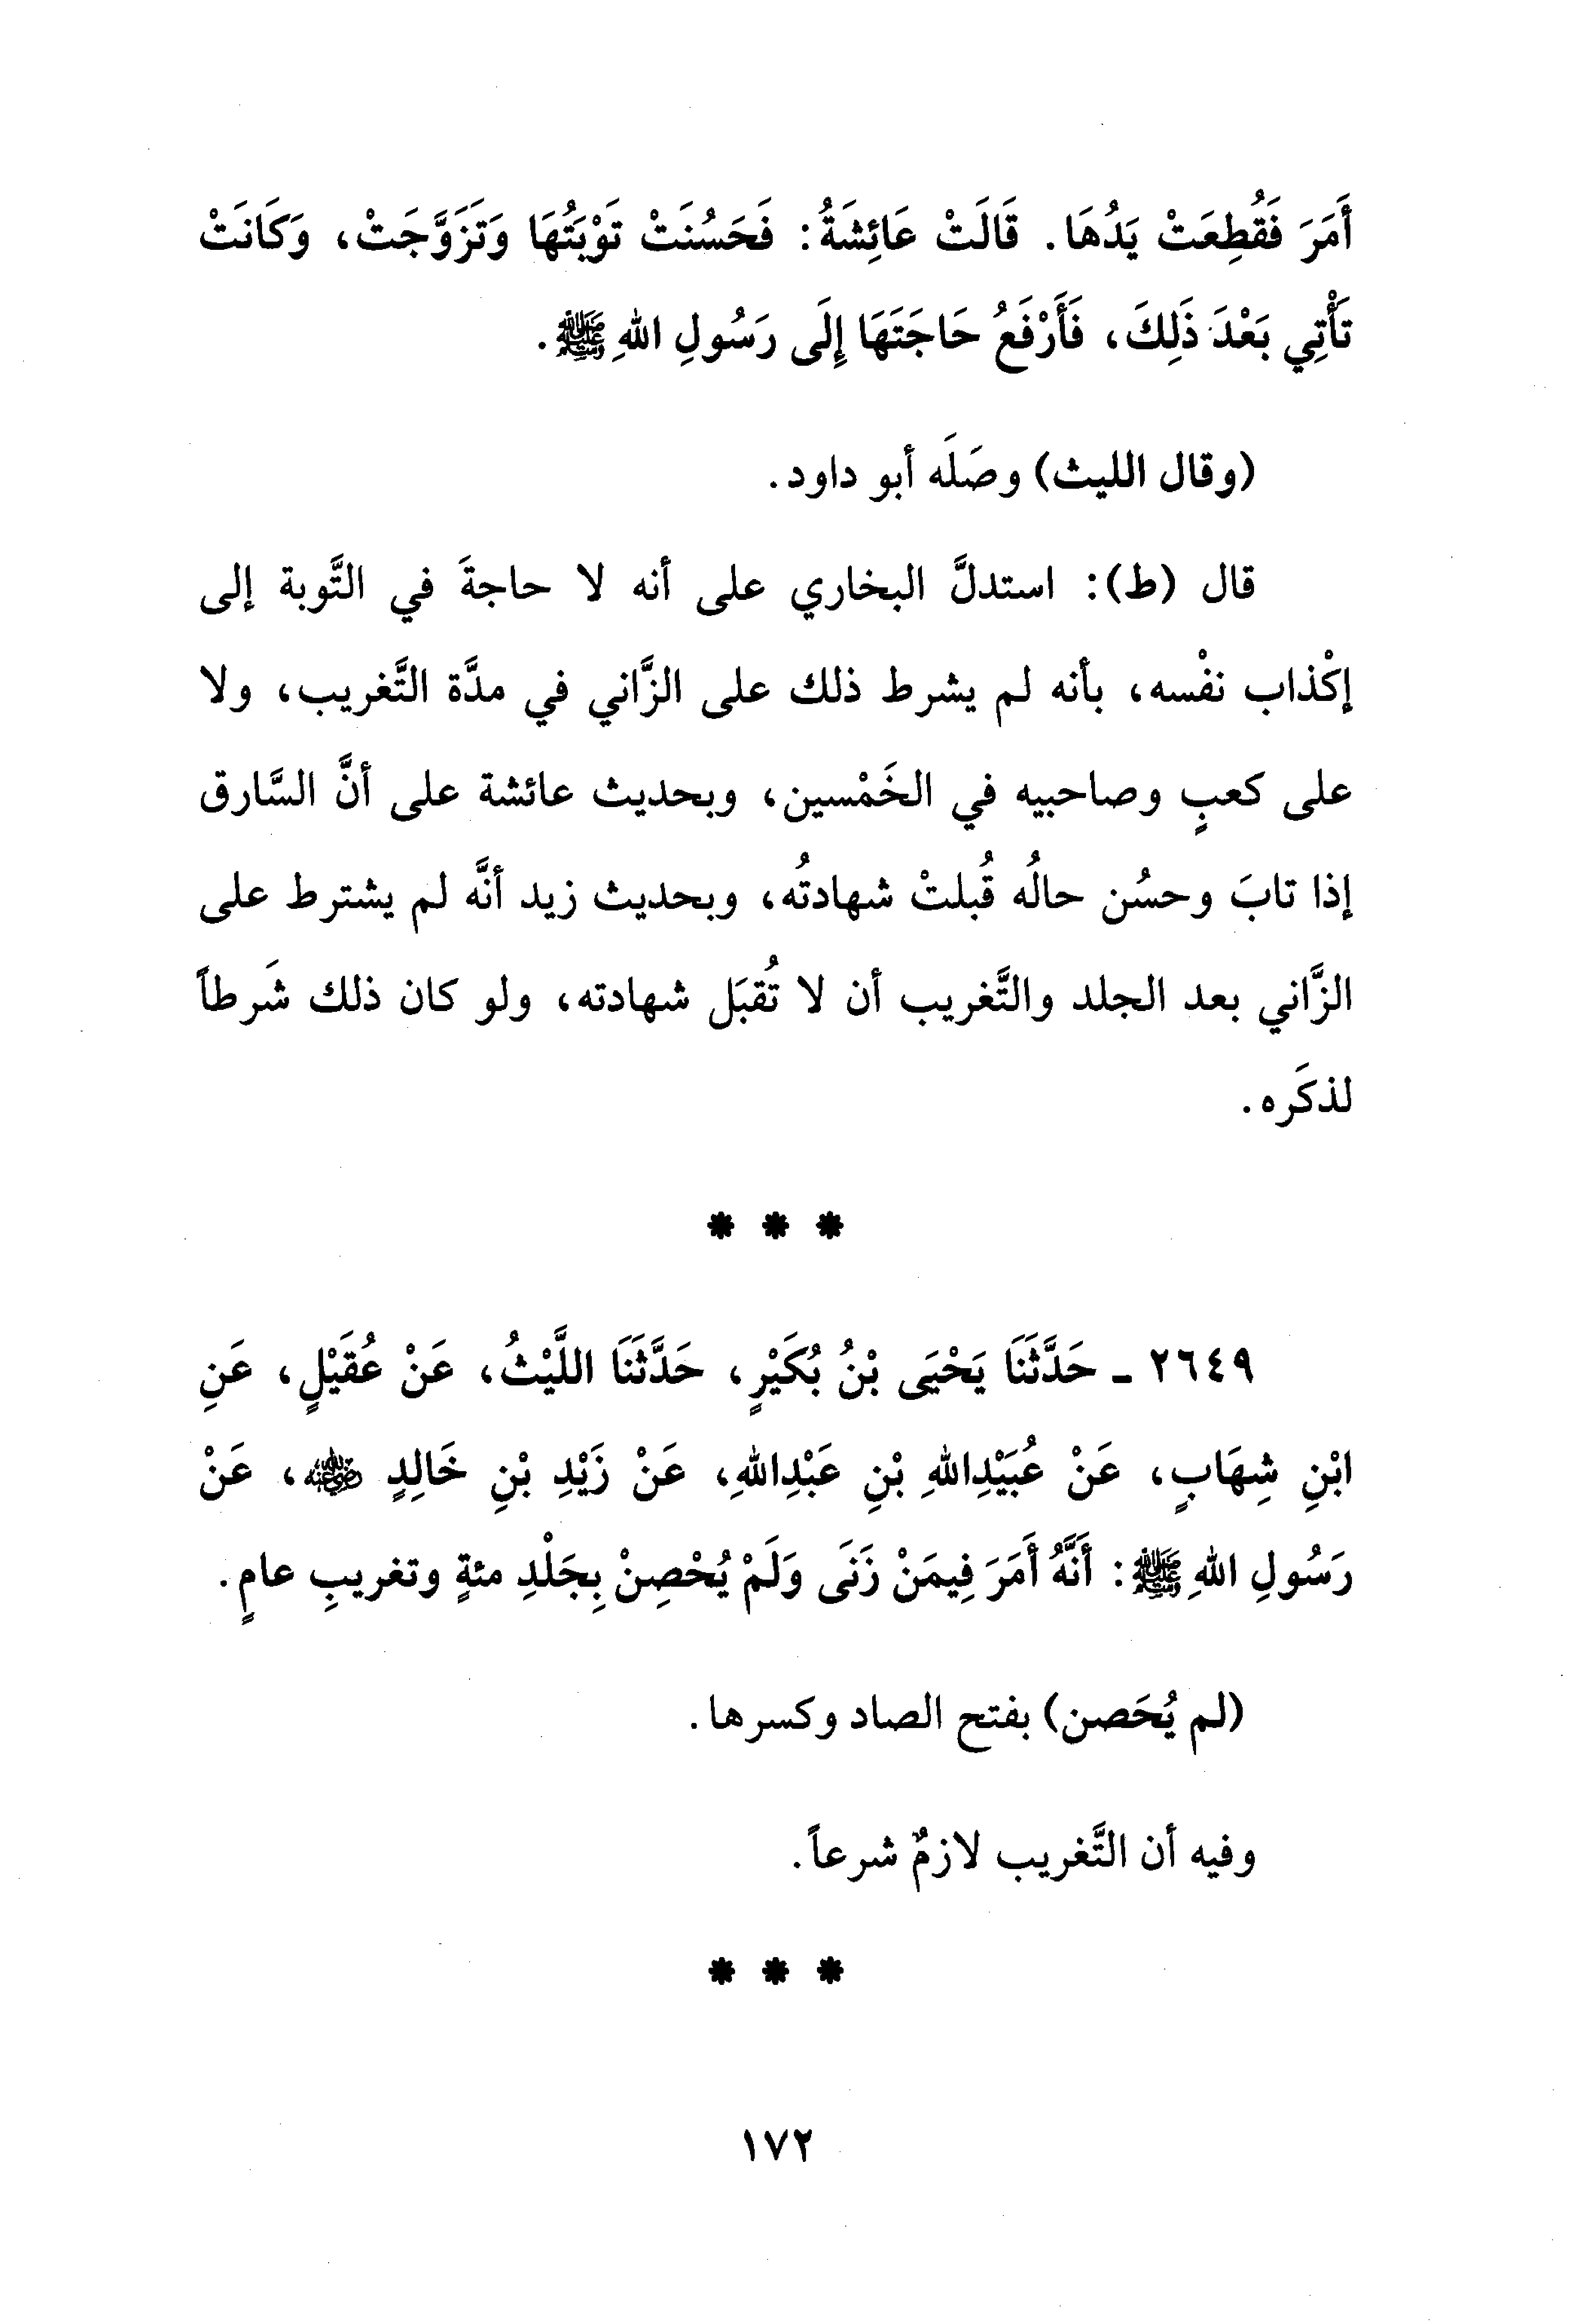 أَمَرَ فَقُطِعَتْ يَدُهَا. قَالَتْ عَائِشَةُ: فَحَسُنَتْ تَوْبَتُهَا وَتَزَوَّجَتْ، وَكَانَتْ
تَأْتِي بَعْدَ ذَلِكَ، فَأَرْفَعُ حَاجَتَهَا إِلَى رَسُولِ اللهِ ﷺ.
(وقال الليث) وصَلَه أبو داود.
قال (ط): استدلَّ البخاري على أنه لا حاجةَ في التَّوبة إلى
إكْذاب نفْسه، بأنه لم يشرط ذلك على الزَّاني في مدَّة التَّغريب، ولا
على كعبٍ وصاحبيه في الخَمْسين، وبحديث عائشة على أنَّ السَّارق
إذا تابَ وحسُن حالُه قُبلتْ شهادتُه، وبحديث زيد أنَّه لم يشترط على
الزَّاني بعد الجلد والتَّغريب أن لا تُقبَل شهادته، ولو كان ذلك شَرطاً
لذكَره.
* * *
٢٦٤٩ - حَدَّثَنَا يَحْيَى بْنُ بُكَيْرٍ، حَدَّثَنَا اللَّيْثُ، عَنْ عُقَيْلٍ، عَنِ
ابْنِ شِهَابٍ، عَنْ عُبَيْدِاللهِ بْنِ عَبْدِاللهِ، عَنْ زَيْدِ بْنِ خَالِدٍ ﵁، عَنْ
رَسُولِ اللهِ ﷺ: أَنَّهُ أَمَرَ فِيمَنْ زَنَى وَلَمْ يُحْصِنْ بِجَلْدِ مئةٍ وتغريبِ عامٍ.
(لم يُحَصن) بفتح الصاد وكسرها.
وفيه أن التَّغريب لازمٌ شرعاً.
* * *
١٧٢